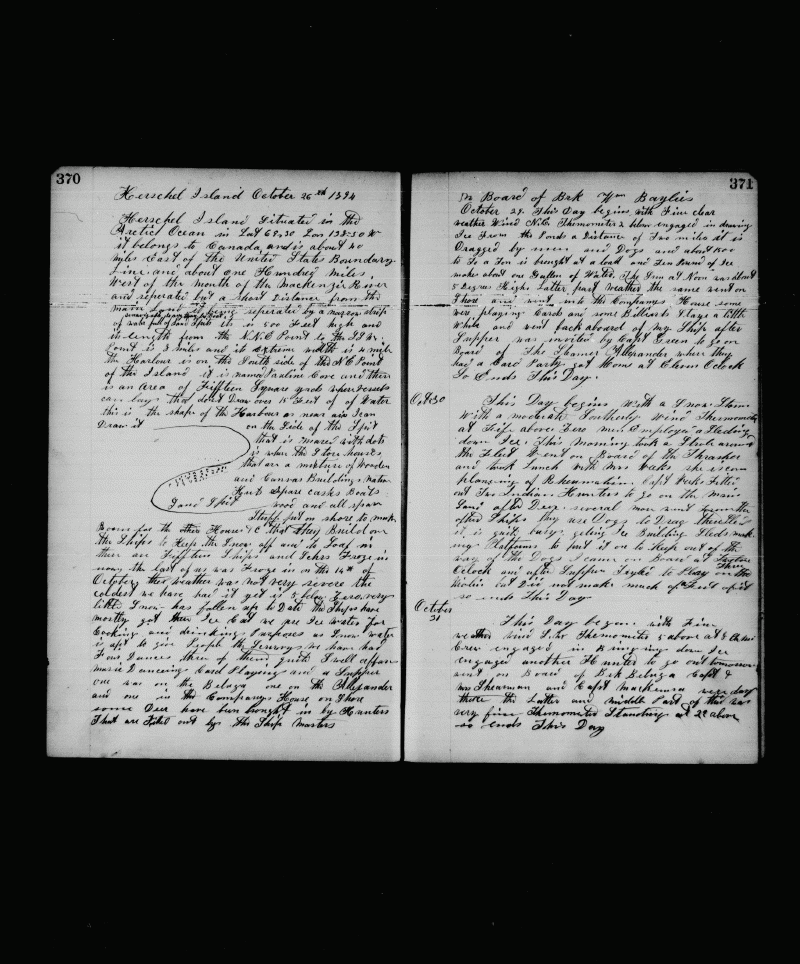 370
Herschel Island October 26th 1894
Herschel Island Situated in the
Arctic Ocean in Lat 69.30 Lon 138.50 W
it belongs to Canada, and is about 40
Miles East of the United States Boundary
Line and about one Hundred Miles
West of the mouth of the Mackenzie River
and seperated but a short Distance from the
main Land being seperated by a narrow strip
of water it is 500 Feet high and
its length from the N.N.E Point to the S.S.W
Point is miles and its extreme width is 4 miles
the Harbour is on the South side of the N.E Point
of the Island it is named Pauline Cove and there
is an Area of Fifteen Square yards where Vessels
can lay that dont Draw over 15 Feet of of Water
this is the shape of the Harbour as near as I can
Draw it on the Side of the Spit
that is marked with dots
is where the Store houses
that are a mixture of Wooden
and Canvas Buildings
Sand Spit Kept Spare casks Boats
wood and all spare
Stuff put on shore to make
Room for the other Houses &C that they Build over
the Ships to Keep the Snow off and to Loaf in
there are Fifteen Ships and Schrs Froze in
now the last of us was Froze in on the 14th of
October the weather was not very severe the
coldest we have had it yet is 8 below Zero, very
little Snow has fallen up to Date the Ships have
mostly got their Ice Cut we use Ice water for
Cooking and drinking Purposes as Snow water
is apt to give People the Scurvy we have had
Four Dances three of them quite Swell affairs
music Dancing Card Playing and a Supper
one was on the Beluga one on the Alexander
and one in the Companys House on Shore
some Deer have been brought in by Hunters
that are Fitted out by the Ship Masters
371
On Board of Brk Wm Baylies
October 29. This Day begins with Fine clear
weather Wind N.E. Thermometer 2 below engaged in drawing
Ice From the Ponds a Distance of Two miles it is
Dragged by men and Dogs and about 800
to Ton is brought at a load and Ten Pound of Ice
makes about one Gallon of Water. The Sun at Noon was about
5 degrees High. Latter part weather the same went on
Shore and went into the Companys House some
were playing Cards and some Billiards I stayed a little
while and went back aboard of my Ship after
Supper was invited by Capt Green to go on
Board of the Steamer Alexander where they
had a Card Party. got Home at Eleven Oclock
So Ends This Day.
Oct 30
This Day begins with a Snow Storm
With a moderate Southerly Wind Thermometer
at Five above Zero men Employed Sleding
down Ice. This Morning took a Stroll around
the Fleet Went on Board of the Thrasher
and took Lunch with Mrs Weeks she is com
plaining of Rheumatism. Capt Weeks Fitted
out Two Indian Hunters to go on the main
Land after Deer several more went from the
other Ships they use Dogs to Drag there Sleds
it is quite busy geting Ice Building Sleds mak
ing Platforms to put it on to Keep out of the
way of the Dogs I came on Board at Twelve
Oclock and after Supper Tryed to Play on the
Violin but Did not make much of a Fist of it
so ends This Day
October
31
This Day began with Fine
weather Wind Thermometer 5 above at 8
Crew engaged in Bringing down Ice
engaged another Hunter to go out tomorrow
went on Board of Brk Beluga Capt &
Mrs Shearman and Capt Mackenna were
there the Latter and Middle Part of the Day was
very fine Thermometer Standing at 22 above
so ends This Day